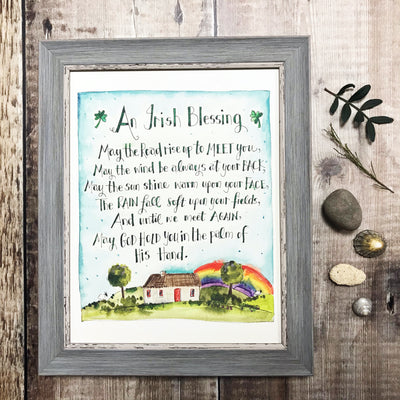 An Irish Blessing
May the Road rise up to MEET you,
May the wind be always at your BACK,
May the sun shine warm upon your FACE,
The RAIN fall soft upon your fields,
And until we meet AGAIN,
May GOD HOLD you in the palm of
His Hand.